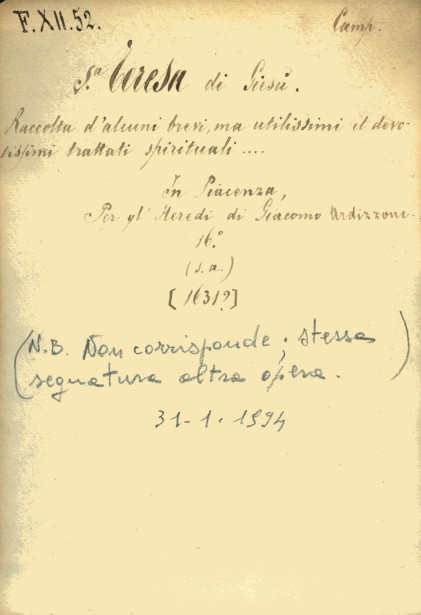 F. XII. 52.
Camp.
S.ª Teresa di Giesù.
Raccolta d'alcuni brevi, ma utilissimi et devo-
tissimi trattati spirituali ....
In Piacenza,
Per gl' Heredi di Giacomo Ardizzone.
16.º
(s.a.)
[1631?]
(N.B. Non corrisponde; stessa
segnatura altra opera.)
31-1-1994